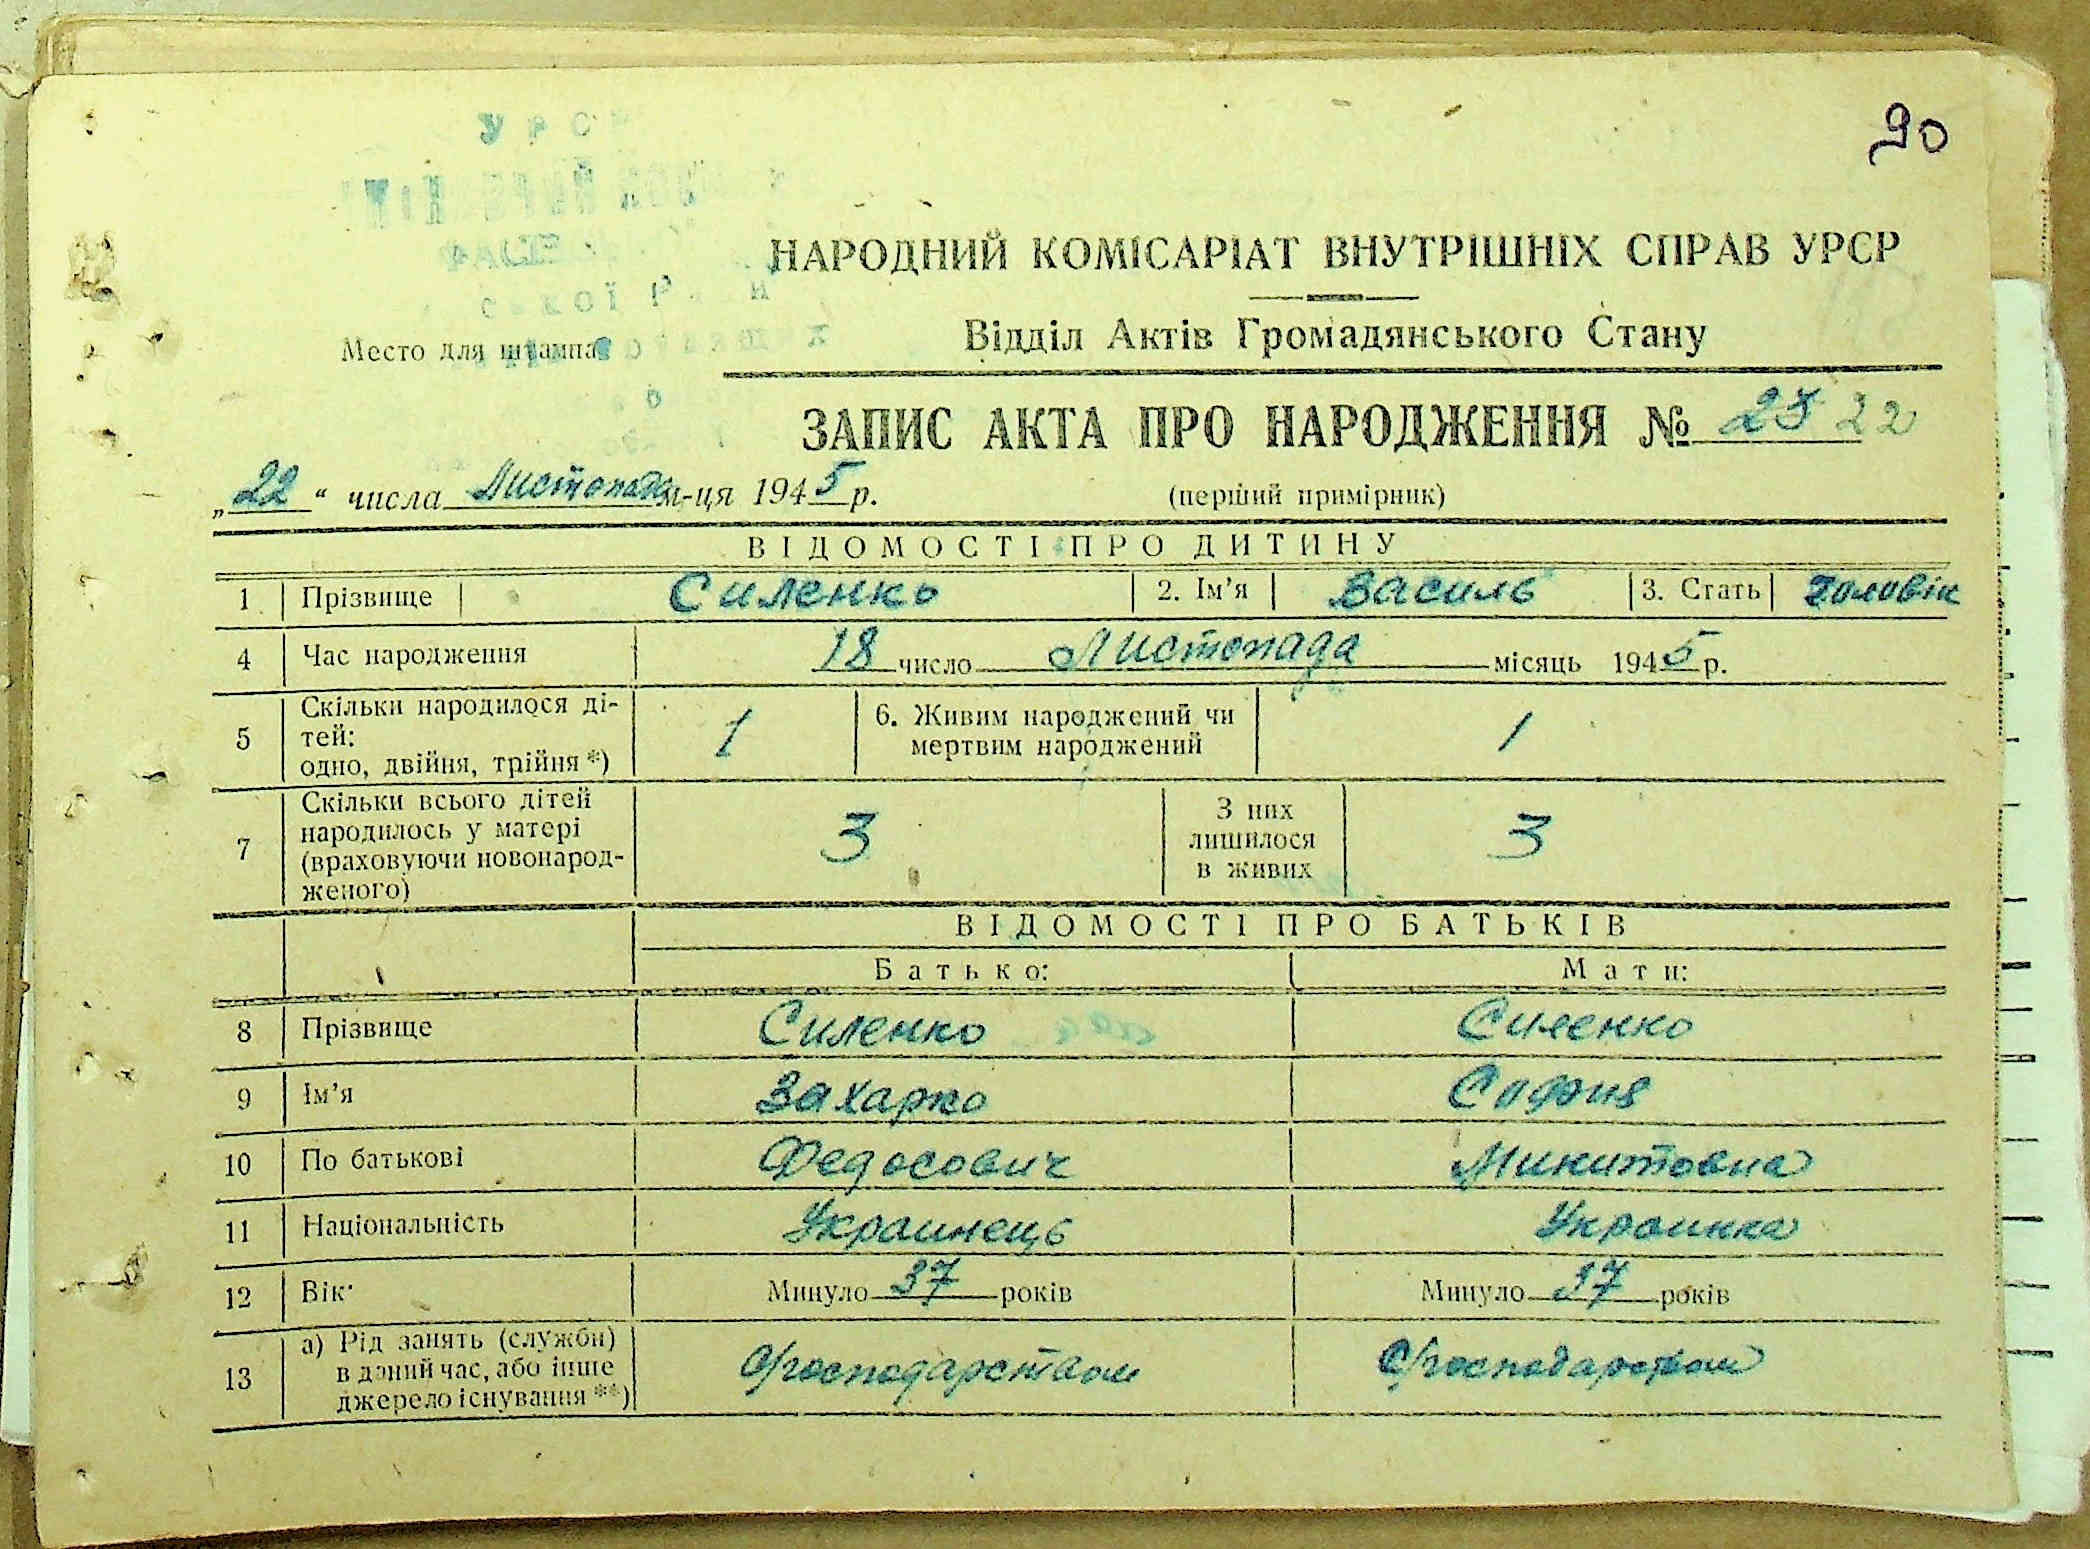 90
У Р С Р
НАРОДНИЙ КОМІСАРІАТ ВНУТРІШНІХ СПРАВ УРСР
Место для штампа
Відділ Актів Громадянського Стану
ЗАПИС АКТА ПРО НАРОДЖЕННЯ № 22
„22“ числа Листопада м-ця 1945 р. (перший примірник)
ВІДОМОСТІ ПРО ДИТИНУ
1 Прізвище Силенко 2. Ім’я Василь 3. Стать Чоловік
4 Час народження 18 число Листопада місяць 1945 р.
5 Скільки народилося ді-
тей:
одно, двійня, трійня *) 1 6. Живим народжений чи
мертвим народжений 1
7 Скільки всього дітей
народилось у матері
(враховуючи новонарод-
женого) 3 З них
лишилося
в живих 3
ВІДОМОСТІ ПРО БАТЬКІВ
Батько: Мати:
8 Прізвище Силенко Силенко
9 Ім’я Захарко София
10 По батькові Федосович Микитовна
11 Національність Украинець Украинка
12 Вік Минуло 37 років Минуло 37 років
13 а) Рід занять (служби)
в даний час, або інше
джерело існування **) Господарством Господарством